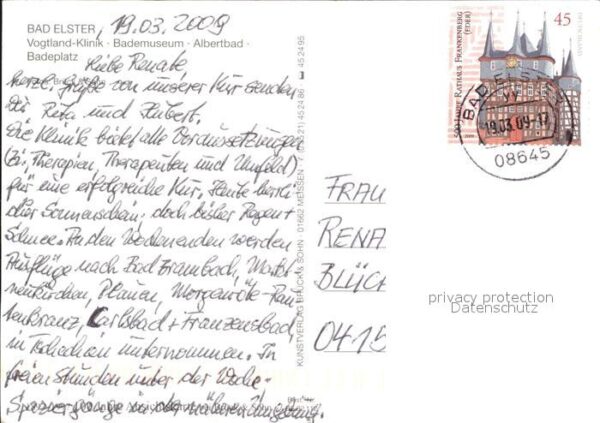 BAD ELSTER, 19.03.2009
Vogtland-Klinik · Bademuseum · Albertbad ·
Badeplatz
Liebe Renate
herzl. Grüße von unserer Kur senden
Dir Rita und Hubert.
Die Klinik bietet alle Voraussetzungen
(Zi., Therapien, Therapeuten und Umfeld)
für eine erfolgreiche Kur. Heute herrl-
cher Sonnenschein, doch bisher Regen +
Schnee. An den Wochenenden werden
Ausflüge nach Bad Brambach, Markt-
neukirchen, Plauen, Morgenröte-Rau-
tenkranz, Carlsbad + Franzensbad
in Tschechien unternommen. In
freien Stunden unter der Woche -
Spaziergänge in der näheren Umgebung.
KUNSTVERLAG BRÜCK & SOHN · 01662 MEISSEN · 45 24 95
45
DEUTSCHLAND
500 JAHRE RATHAUS FRANKENBERG
(EDER)
BAD ELSTER
19.03.09-17
08645
FRAU
RENA
BLÜCH
0415
privacy protection
Datenschutz